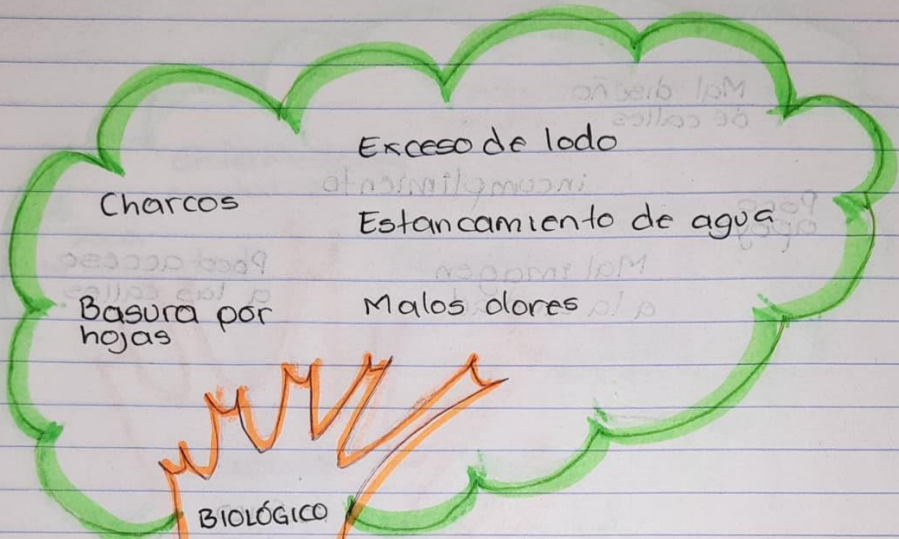 Exceso de lodo
Charcos
Estancamiento de agua
Basura por
hojas
Malos olores
BIOLÓGICO